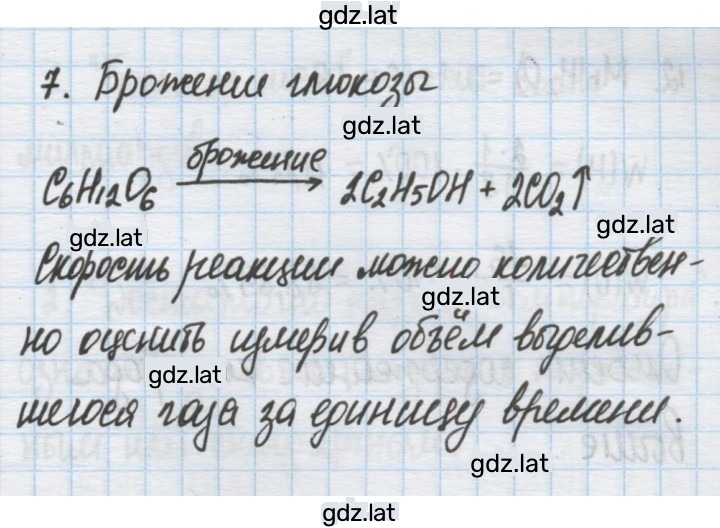 gdz.lat
7. Брожение глюкозы
gdz.lat
C₆H₁₂O₆ брожение → 2C₂H₅OH + 2CO₂↑
gdz.lat
gdz.lat
Скорость реакции можно количествен-
gdz.lat
но оценить измерив объём выделив-
gdz.lat
шегося газа за единицу времени.
gdz.lat
gdz.lat